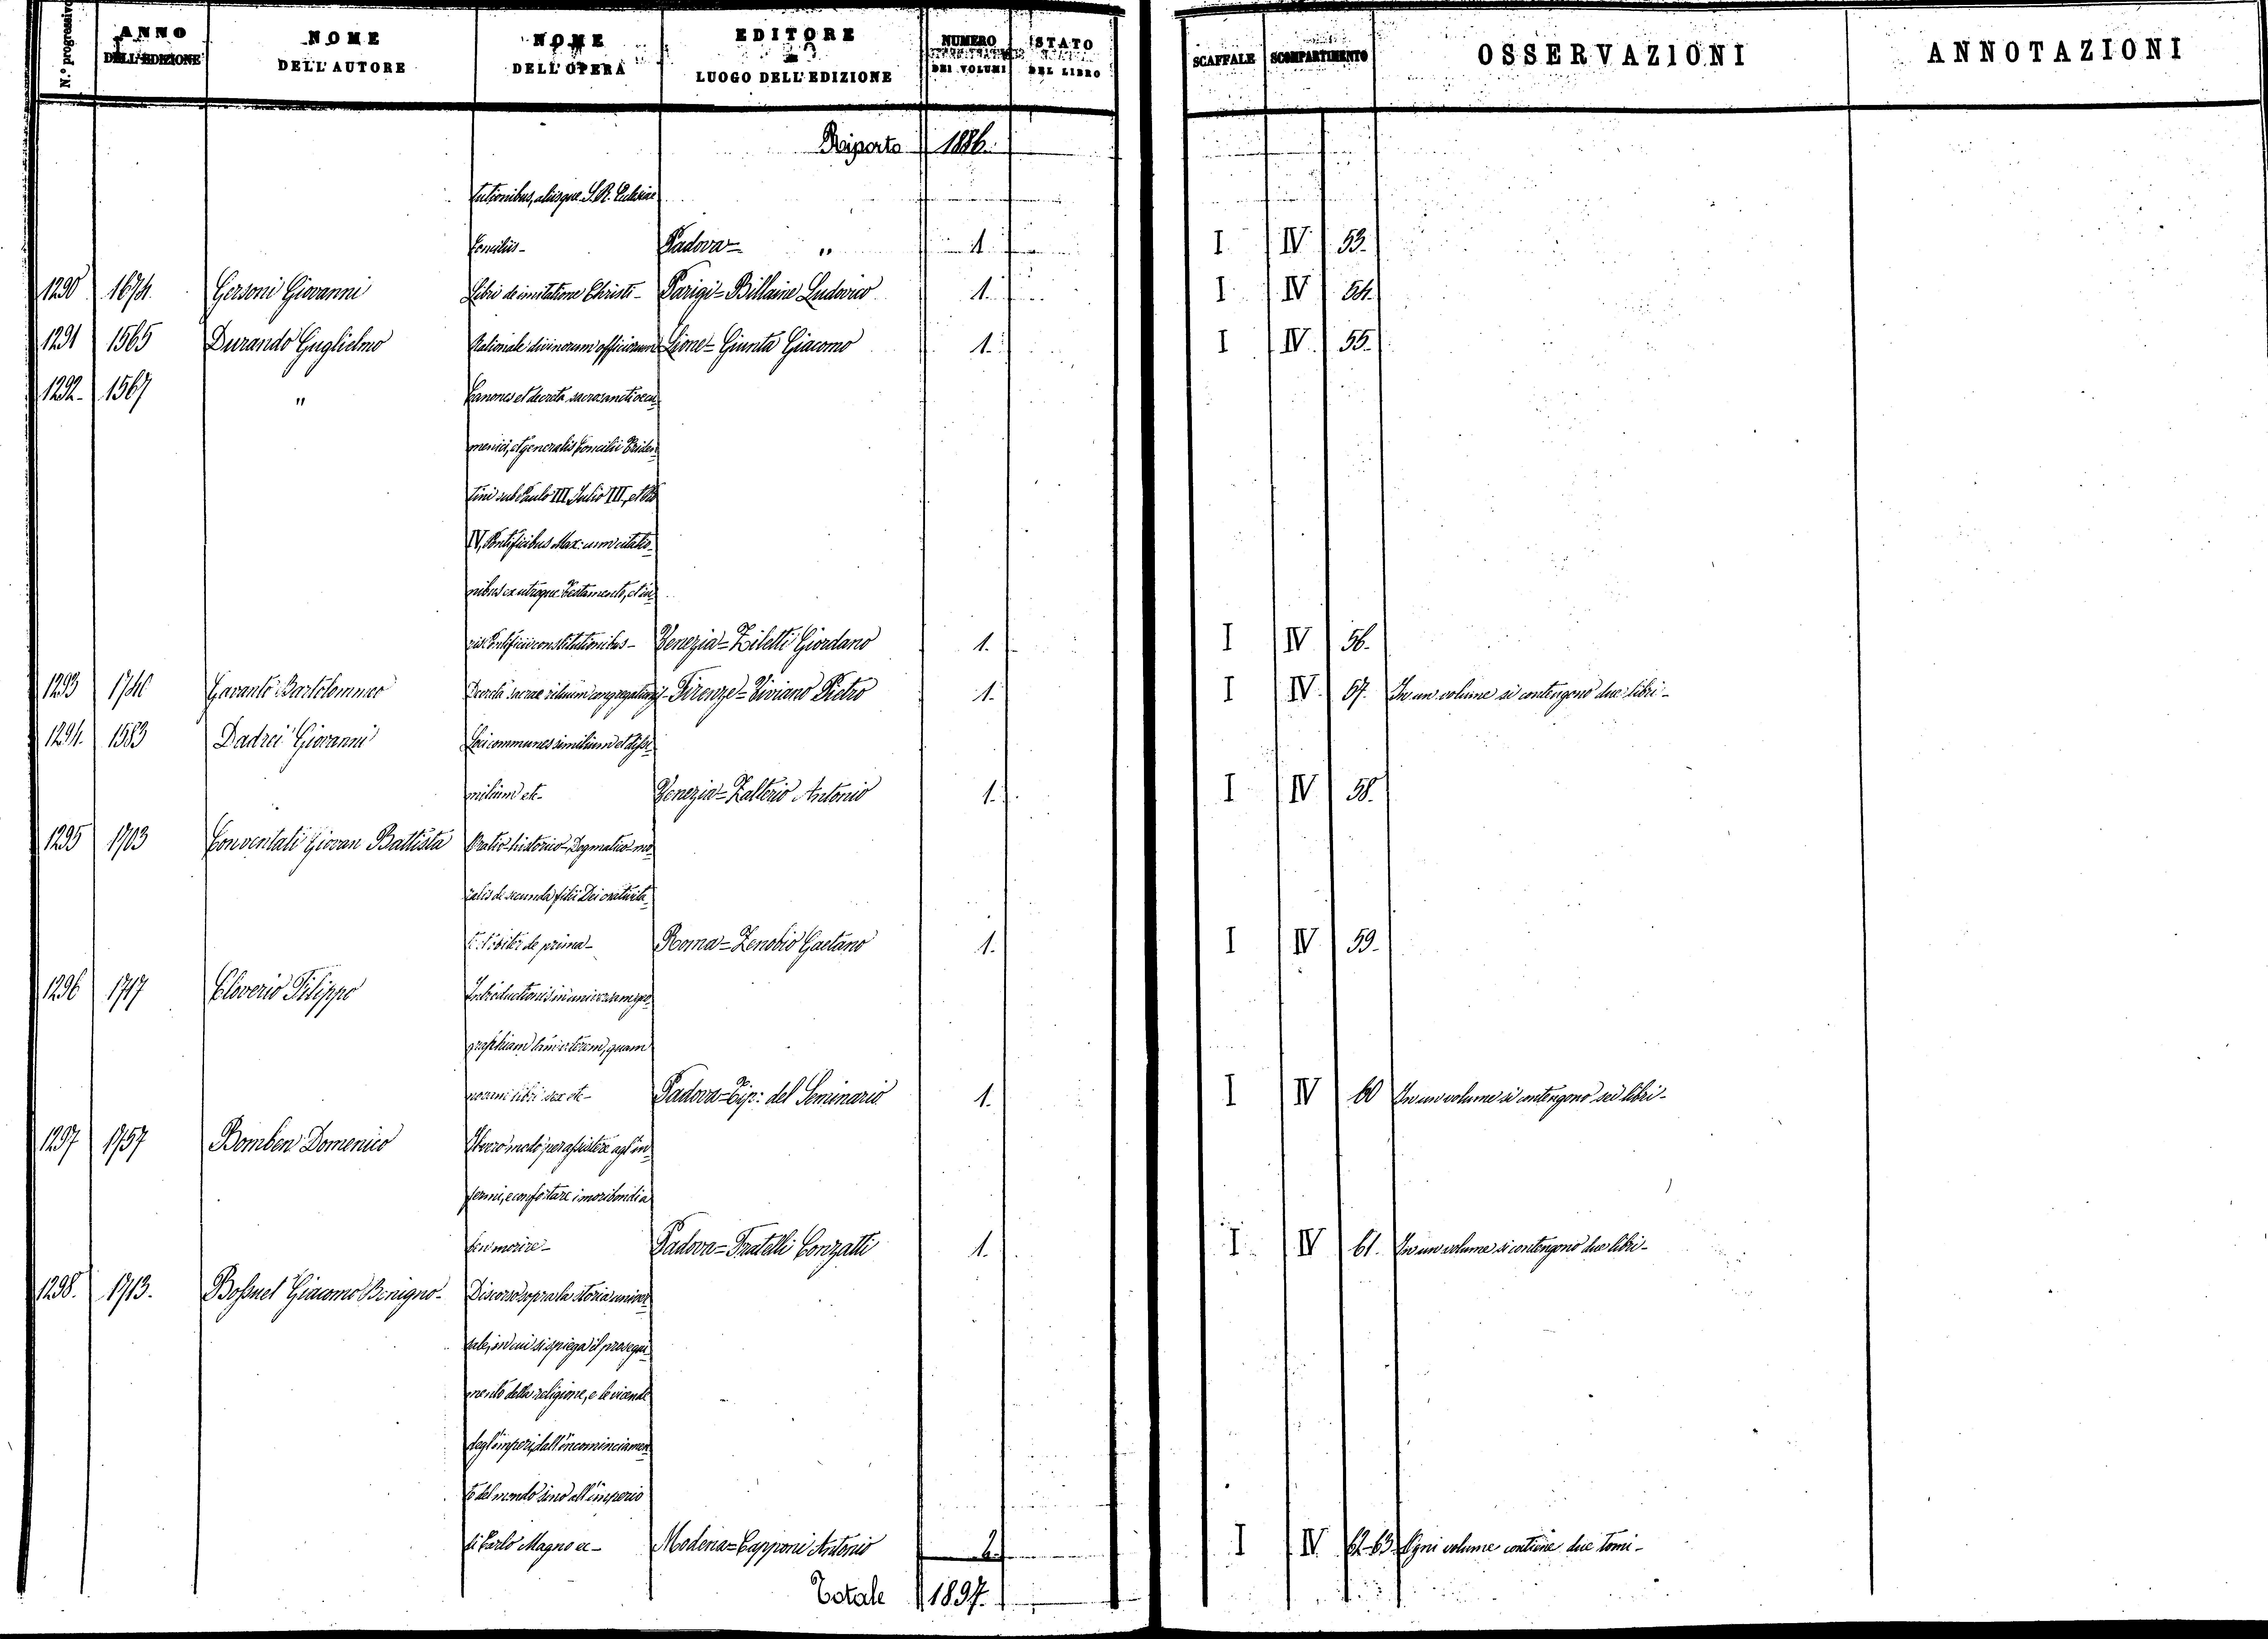 N.° progressivo
ANNO DELL'EDIZIONE
NOME DELL'AUTORE
NOME DELL'OPERA
EDITORE E LUOGO DELL'EDIZIONE
NUMERO DEI VOLUMI
STATO DEL LIBRO
SCAFFALE
SCOMPARTIMENTO
OSSERVAZIONI
ANNOTAZIONI
Riporto 1886.
tutionibus, aliisque S. R. Ecclesiae
Conciliis - Padova = " 1 I IV 53.
1290 1674 Gersoni Giovanni Libri de imitatione Christi - Parigi = Billaine Ludovico 1. I IV 54.
1291 1565 Durando Guglielmo Rationale divinorum officiorum Lione = Giunta Giacomo 1. I IV 55.
1292 - 1567 " Canones et decreta sacrosancti oecu-
menici, et generalis Concilii Triden-
tini sub Paulo III, Julio III, et Pio
IV, Pontificibus Max: cum citatio-
nibus ex utroque Testamento, et iu-
ris Pontificii constitutionibus - Venezia = Ziletti Giordano 1. I IV 56.
1293 1740 Gavanto Bartolommeo Decreta sacrae rituum congregationis - Firenze = Viviano Pietro 1. I IV 57. In un volume si contengono due libri -
1294. 1583 Dadrei Giovanni Loci communes similium et dissi-
milium etc - Venezia = Zalterio Antonio 1. I IV 58.
1295 1703 Conventati Giovan Battista Oratio historico-Dogmatico-mo-
ralis de secunda filii Dei nativita-
te obiter de prima - Roma = Zenobio Gaetano 1. I IV 59.
1296 1717 Cloverio Filippo Introductionis in universam geo-
graphiam tam veterem, quam
novam libri sex etc - Padova = Tip: del Seminario 1. I IV 60 In un volume si contengono sei libri -
1297 1757 Bomben Domenico Il vero modo per assistere agl'in-
fermi, e confortare i moribondi a
ben morire - Padova = Fratelli Conzatti 1. I IV 61. In un volume si contengono due libri -
1298. 1713. Bossuet Giacomo Benigno - Discorso sopra la storia univer-
sale, in cui si spiega il prosegui-
mento della religione, e le vicende
degl'imperi, dall'incominciamen-
to del mondo sino all'imperio
di Carlo Magno ec - Modena = Capponi Antonio 2. I IV 62-63 Ogni volume contiene due tomi -
Totale 1897.